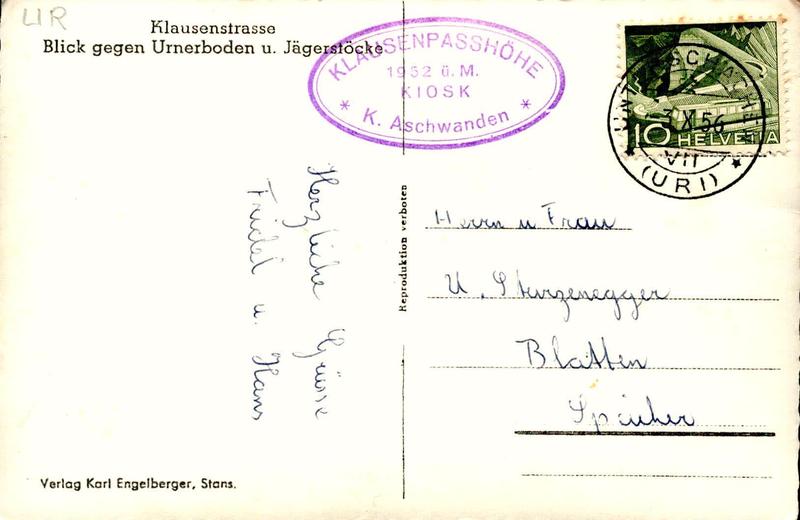 UR
Klausenstrasse
Blick gegen Urnerboden u. Jägerstöcke
KLAUSENPASSHÖHE
1952 ü. M.
KIOSK
* K. Aschwanden *
UNTERSCHÄCHEN
3.X.56
VII
* (URI) *
10 HELVETIA
Herzliche Grüsse
Friedel u. Hans
Reproduktion verboten
Herrn u Frau
U. Sturzenegger
Blatten
Speicher
Verlag Karl Engelberger, Stans.